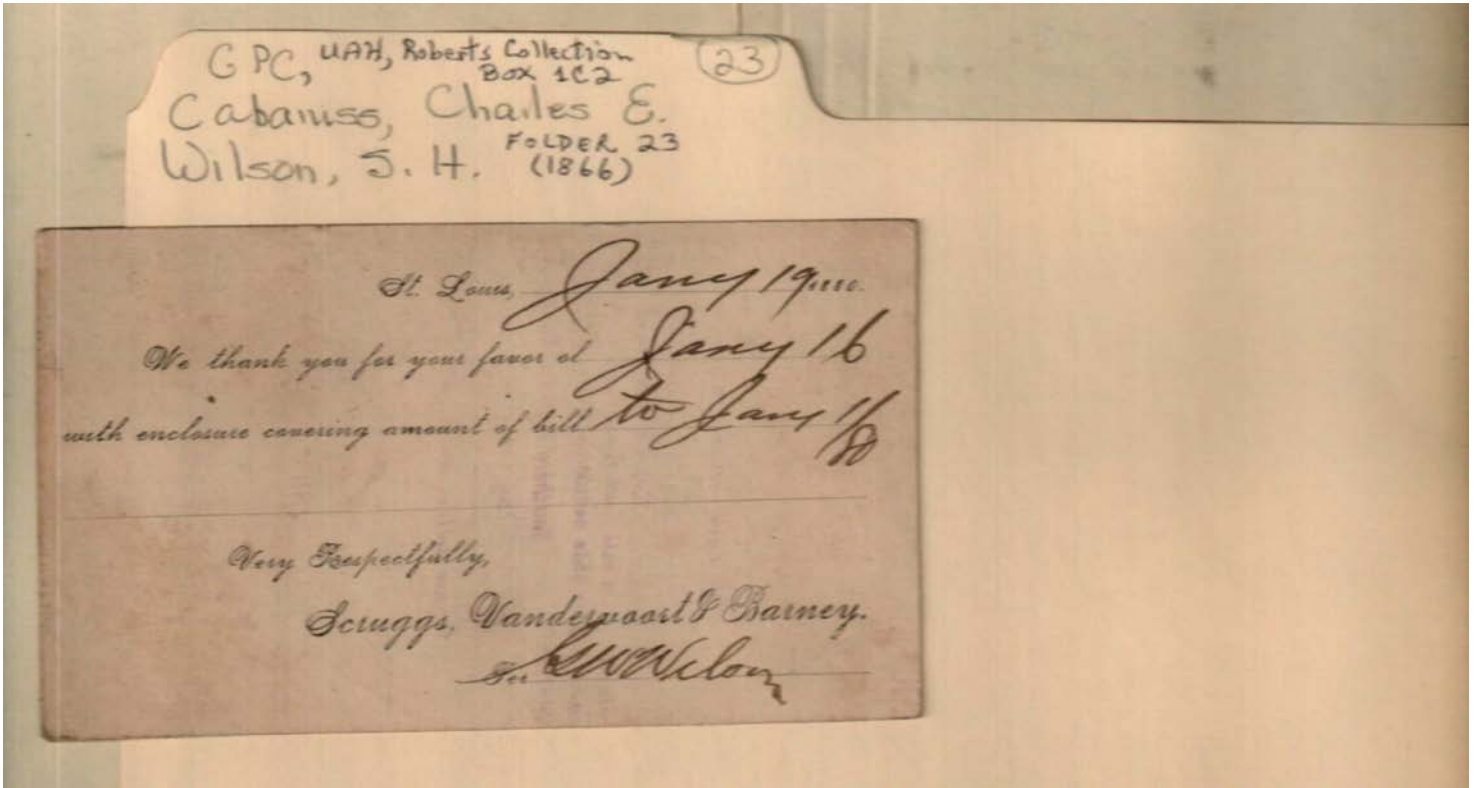 GPC, UAH, Roberts Collection
Box 1C2
23
Cabaniss, Charles E.
Wilson, S. H. FOLDER 23
(1866)
St. Louis, Jany 19
We thank you for your favor of Jany 16
with enclosure covering amount of bill to Jany 1/80
Very Respectfully,
Scruggs, Vandervoort & Barney.
Per Wilson